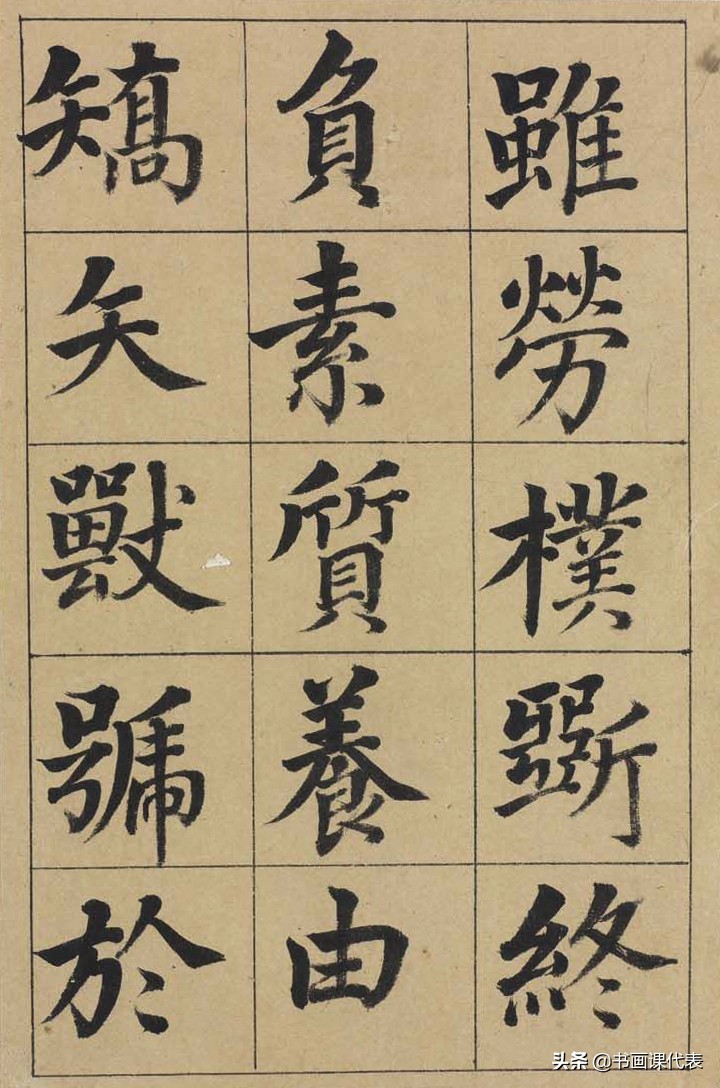 雖勞樸斵終
負素質養由
矯矢獸號於
头条 @书画课代表